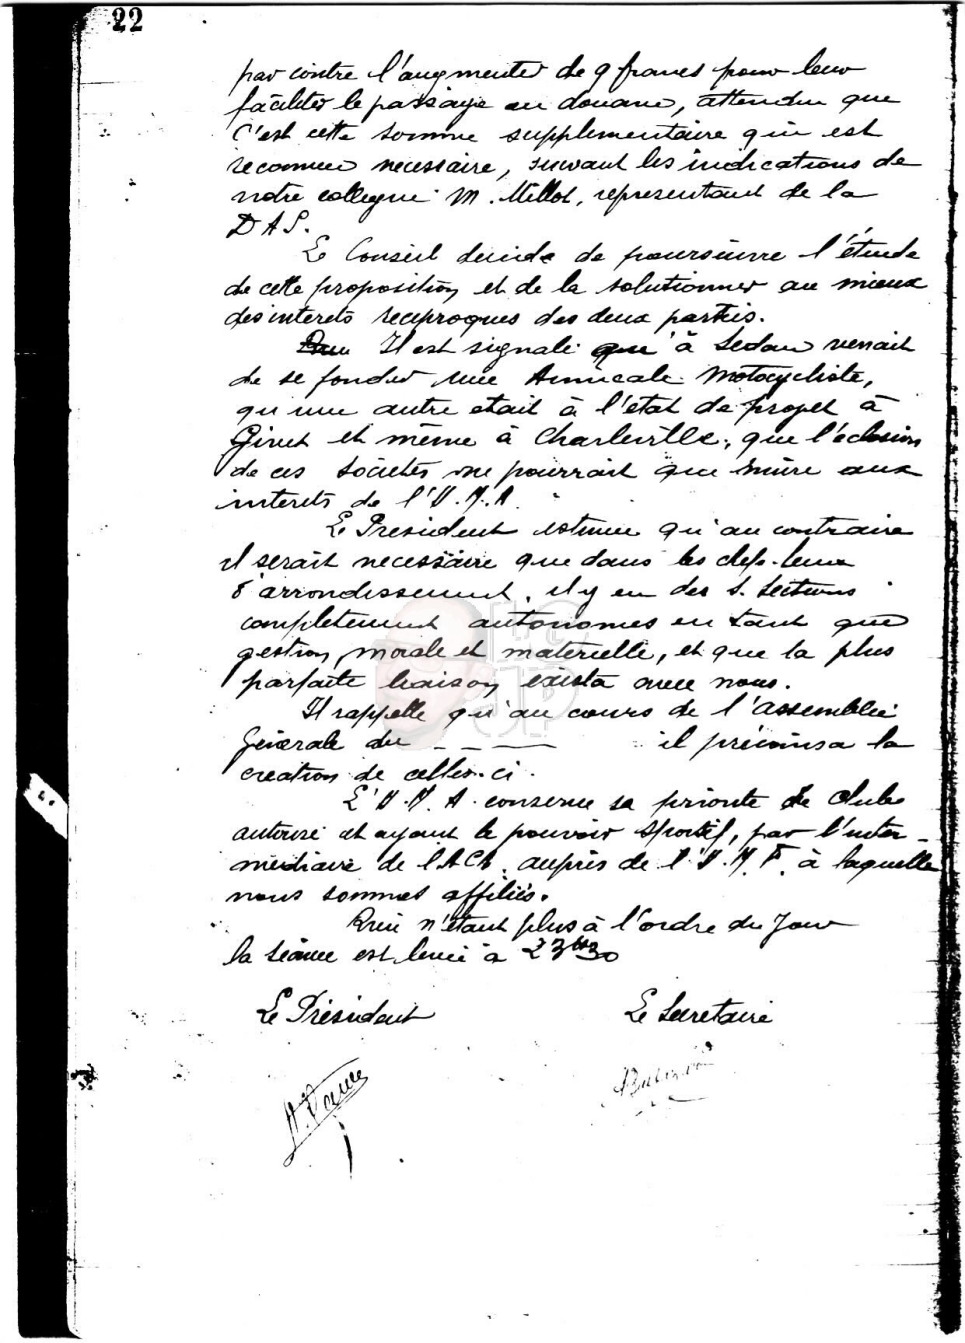 22
par contre l'augmenter de 9 francs pour leur
faciliter le passage en douane, attendu que
c'est cette somme supplementaire qui est
reconnue necessaire, suivant les indications de
notre collegue M. Millot, representant de la
DAS.
Le Conseil decide de poursuivre l'étude
de cette proposition et de la solutionner au mieux
des interets reciproques des deux partis.
Il est signalé qu'à Sedan venait
de se fonder une Amicale Motocycliste,
qu'une autre etait à l'état de projet à
Givet et même à Charleville, que l'éclosion
de ces sociétés ne pourrait que nuire aux
interets de l'U.M.A
Le President estime qu'au contraire
il serait necessaire que dans les chefs-lieux
d'arrondissement, il y eu des S. Sections
completement autonomes en tant que
gestion morale et materielle, et que la plus
parfaite liaison exista avec nous.
Il rappelle qu'au cours de l'assemblée
Générale du _ _ _ _ il préconisa la
création de celles-ci.
L'U.M.A. conserve sa priorité de Club
autorisé et ayant le pouvoir sportif, par l'inter-
médiaire de l'ACA. auprès de l'U.M.F. à laquelle
nous sommes affiliés.
Rien n'étant plus à l'ordre du Jour
la séance est levée à 23h30
Le Président Le Secretaire